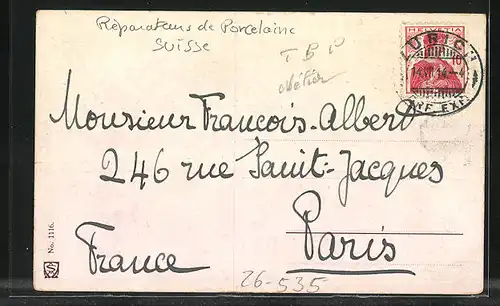 Réparateurs de Porcelaine
SUISSE
T B P
Métier
HELVETIA
10
ZÜRICH
BRF. EXP.
Monsieur François-Albert
246 rue Saint-Jacques
Paris
France
No. 1116.
26-535